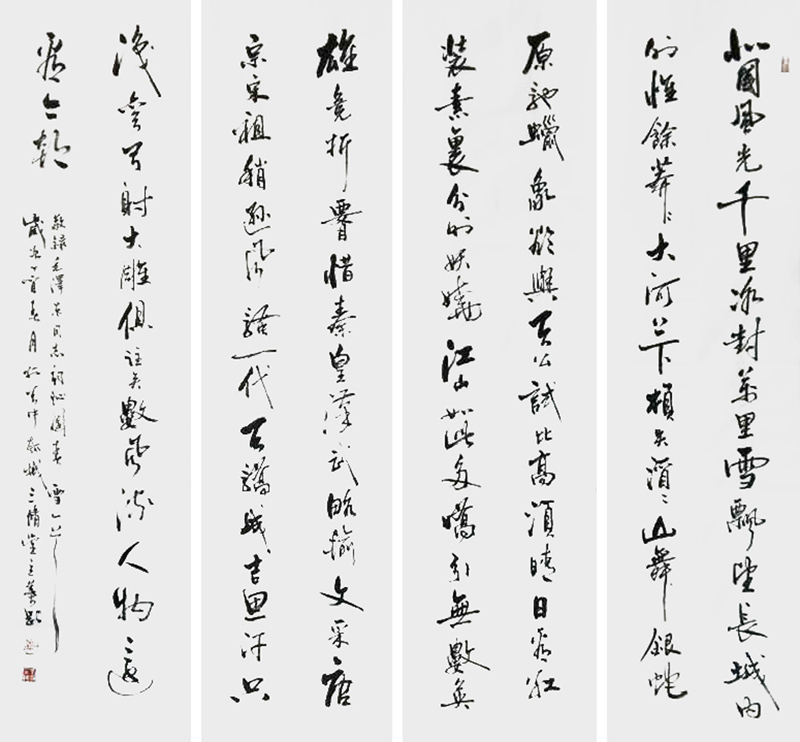 北國風光千里冰封萬里雪飄望長城內
外惟餘莽〻大河上下頓失滔〻山舞銀蛇
原馳蠟象欲與天公試比高須晴日看紅
裝素裹分外妖嬈江山如此多嬌引無數英
雄竟折腰惜秦皇漢武略輸文采唐
宗宋祖稍遜風騷一代天驕成吉思汗只
識彎弓射大雕俱往矣數風流人物還
看今朝
敬錄毛澤東同志詞沁園春雪一首
歲次丁酉春月於